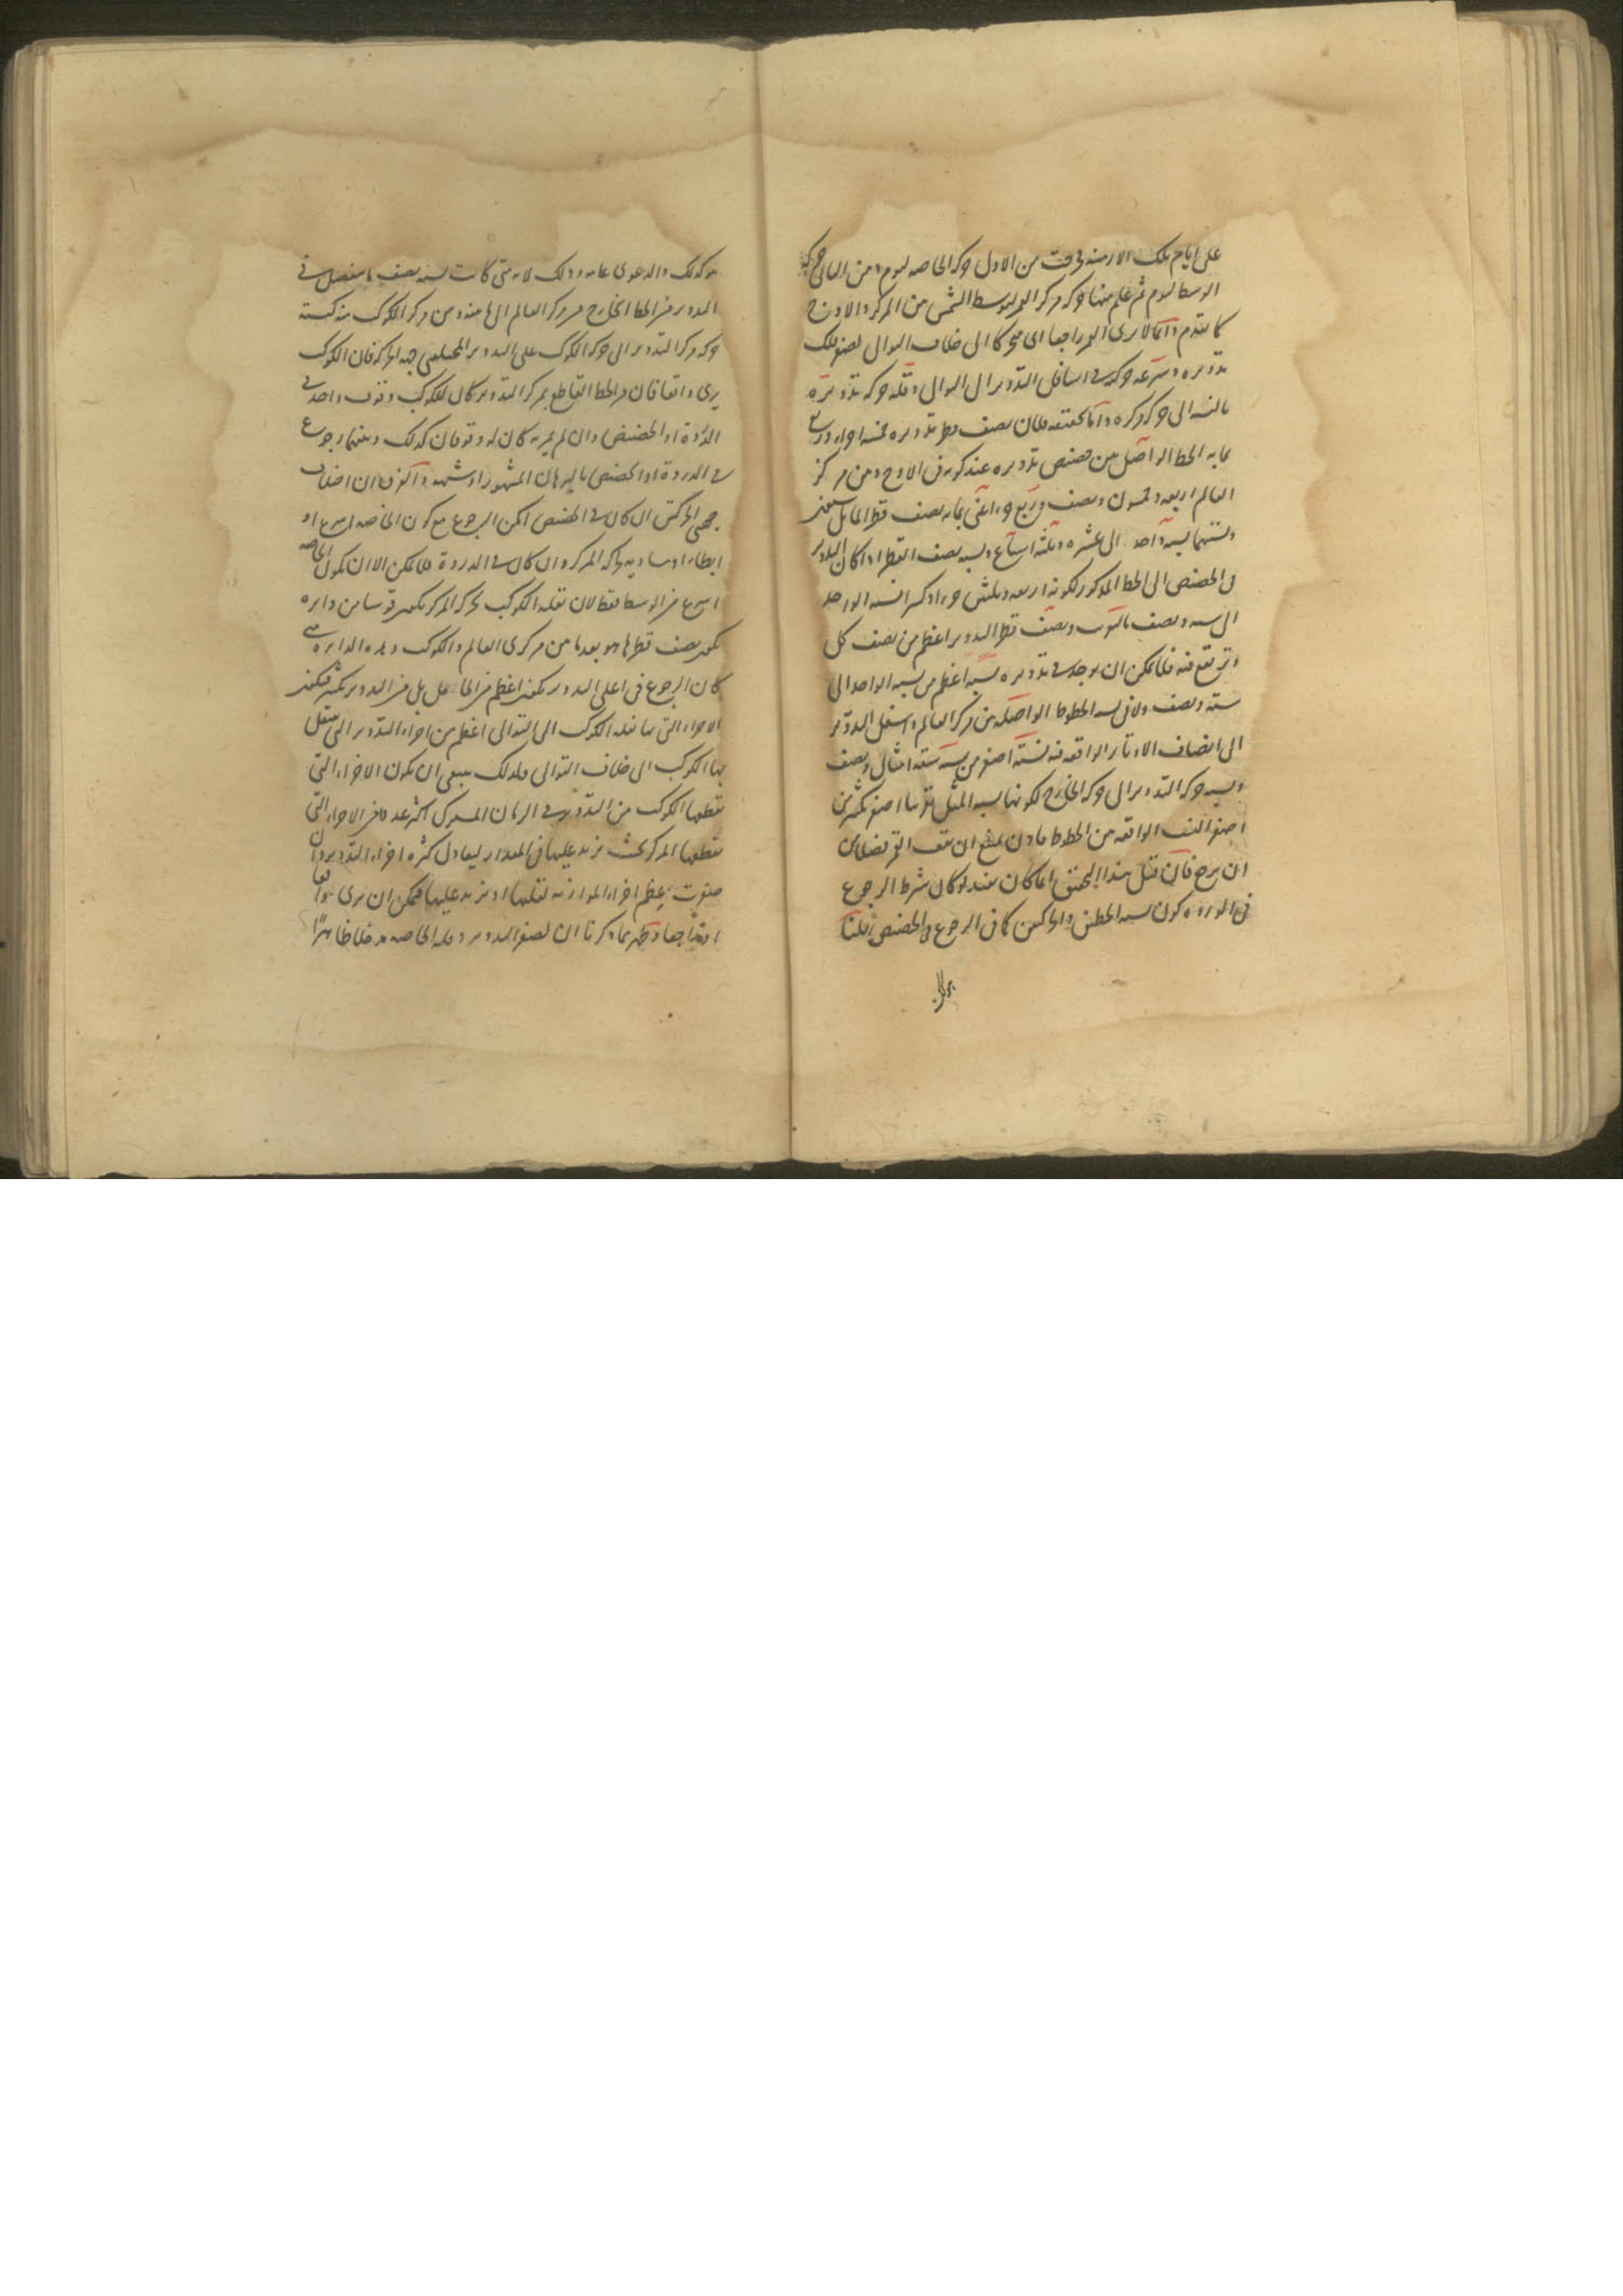 على ايام تلك الازمنه خرجت من الاول حركه الخاصه ليوم ومن الثانى حركه
الوسط ليوم ثم علم منها حركه مركز القمر لوسط الشمس من المركز والاوج
كما تقدم وانما لا يرى القمر راجعا اى متحركا الى خلاف التوالى لصغر فلك
تدويره وسرعه حركته فى اسافل التدوير الى التوالى وقله حركه تدويره
بالنسبه الى حركه مركزه واما تحقيقه فلان نصف قطر تدويره خمسه اجزاء وربع
بما به الخط الواصل بين حضيض تدويره عند كونه فى الاوج وبين مركز
العالم اربعه وخمسون ونصف وربع جزء اعنى بما به نصف قطر المايل ستين
ونسبتهما نسبه واحد الى عشره وثلثه اسباع ونسبه نصف القطر اذا كان التدوير
فى الحضيض الى الخط المذكور لكونه اربعه وثلثين جزءا وكسرا نسبه الواحد
الى سته ونصف بالتقريب ونصف قطر التدوير اعظم من نصف كل
وتر يقع فيه فلا يمكن ان يوجد فى تدويره نسبه اعظم من نسبه الواحد الى
سته ونصف ولا فى نسبه الخطوط الواصله بين مركز العالم واسفل التدوير
الى انصاف الاوتار الواقعه فيه نسبته اصغر من نسبه سته امثال ونصف
ونسبه حركه التدوير الى حركه الخارج لكونها نسبه المثل تقريبا اصغر بكثير من
اصغر النسب الواقعه من الخطوط فاذن يمتنع ان يقف القمر فضلا عن
ان يرجع فان قيل هذا التحقيق انما كان يفيد لو كان شرط الرجوع
فى الذروه كون نسبه الخطين والحركتين كما فى الرجوع فى الحضيض قلنا
هو كذلك والدعوى عامه وذلك لانه متى كانت نسبه نصف ما ينفصل فى
التدوير من الخط الخارج من مركز العالم الى ما منه ومن مركز الكوكب منه كنسبه
حركه مركز التدوير الى حركه الكوكب على التدوير المختلفتى جهه الحركه فان الكوكب
يرى واقفا فان مر الخط القاطع بمركز التدوير كان للكوكب وقوف واحد فى
الذروة او الحضيض وان لم يمر به كان له وقوفان كذلك وبينهما رجوع
فى الذروة او الحضيض بالبرهان المشهور
جهتى الحركتين ان كان فى الحضيض امكن الرجوع مع كون الخاصه اسرع او
ابطاء او مساويه لحركه المركز وان كان فى الذروة فلا يمكن الا ان تكون الخاصه
اسرع من الوسط فقط لان نقله الكوكب بحركه المركز تكون قوسا من دايره
يكون نصف قطرها هو بعد ما بين مركزى العالم والكوكب وهذه الدايره متى
كان الرجوع فى اعلى التدوير تكون اعظم من الحامل بل من التدوير بكثير فتكون
الاجزاء التى بها نقله الكوكب الى التوالى اعظم من اجزاء التدوير التى ينتقل
بها الكوكب الى خلاف التوالى ولذلك ينبغى ان يكون الاجزاء التى
يقطعها الكوكب من التدوير فى الزمان المشترك اكثر عددا من الاجزاء التى
يقطعها المركز بحيث يزيد عليها فى المقدار ليعادل كثره اجزاء التدوير وان
صغرت بعظم اجزاء الموازيه لنقلها او يزيد عليها فيمكن ان يرى واقفا
او راجعا وظهر بما ذكرنا ان لصغر التدوير وقله الخاصه مدخلا ظاهرا